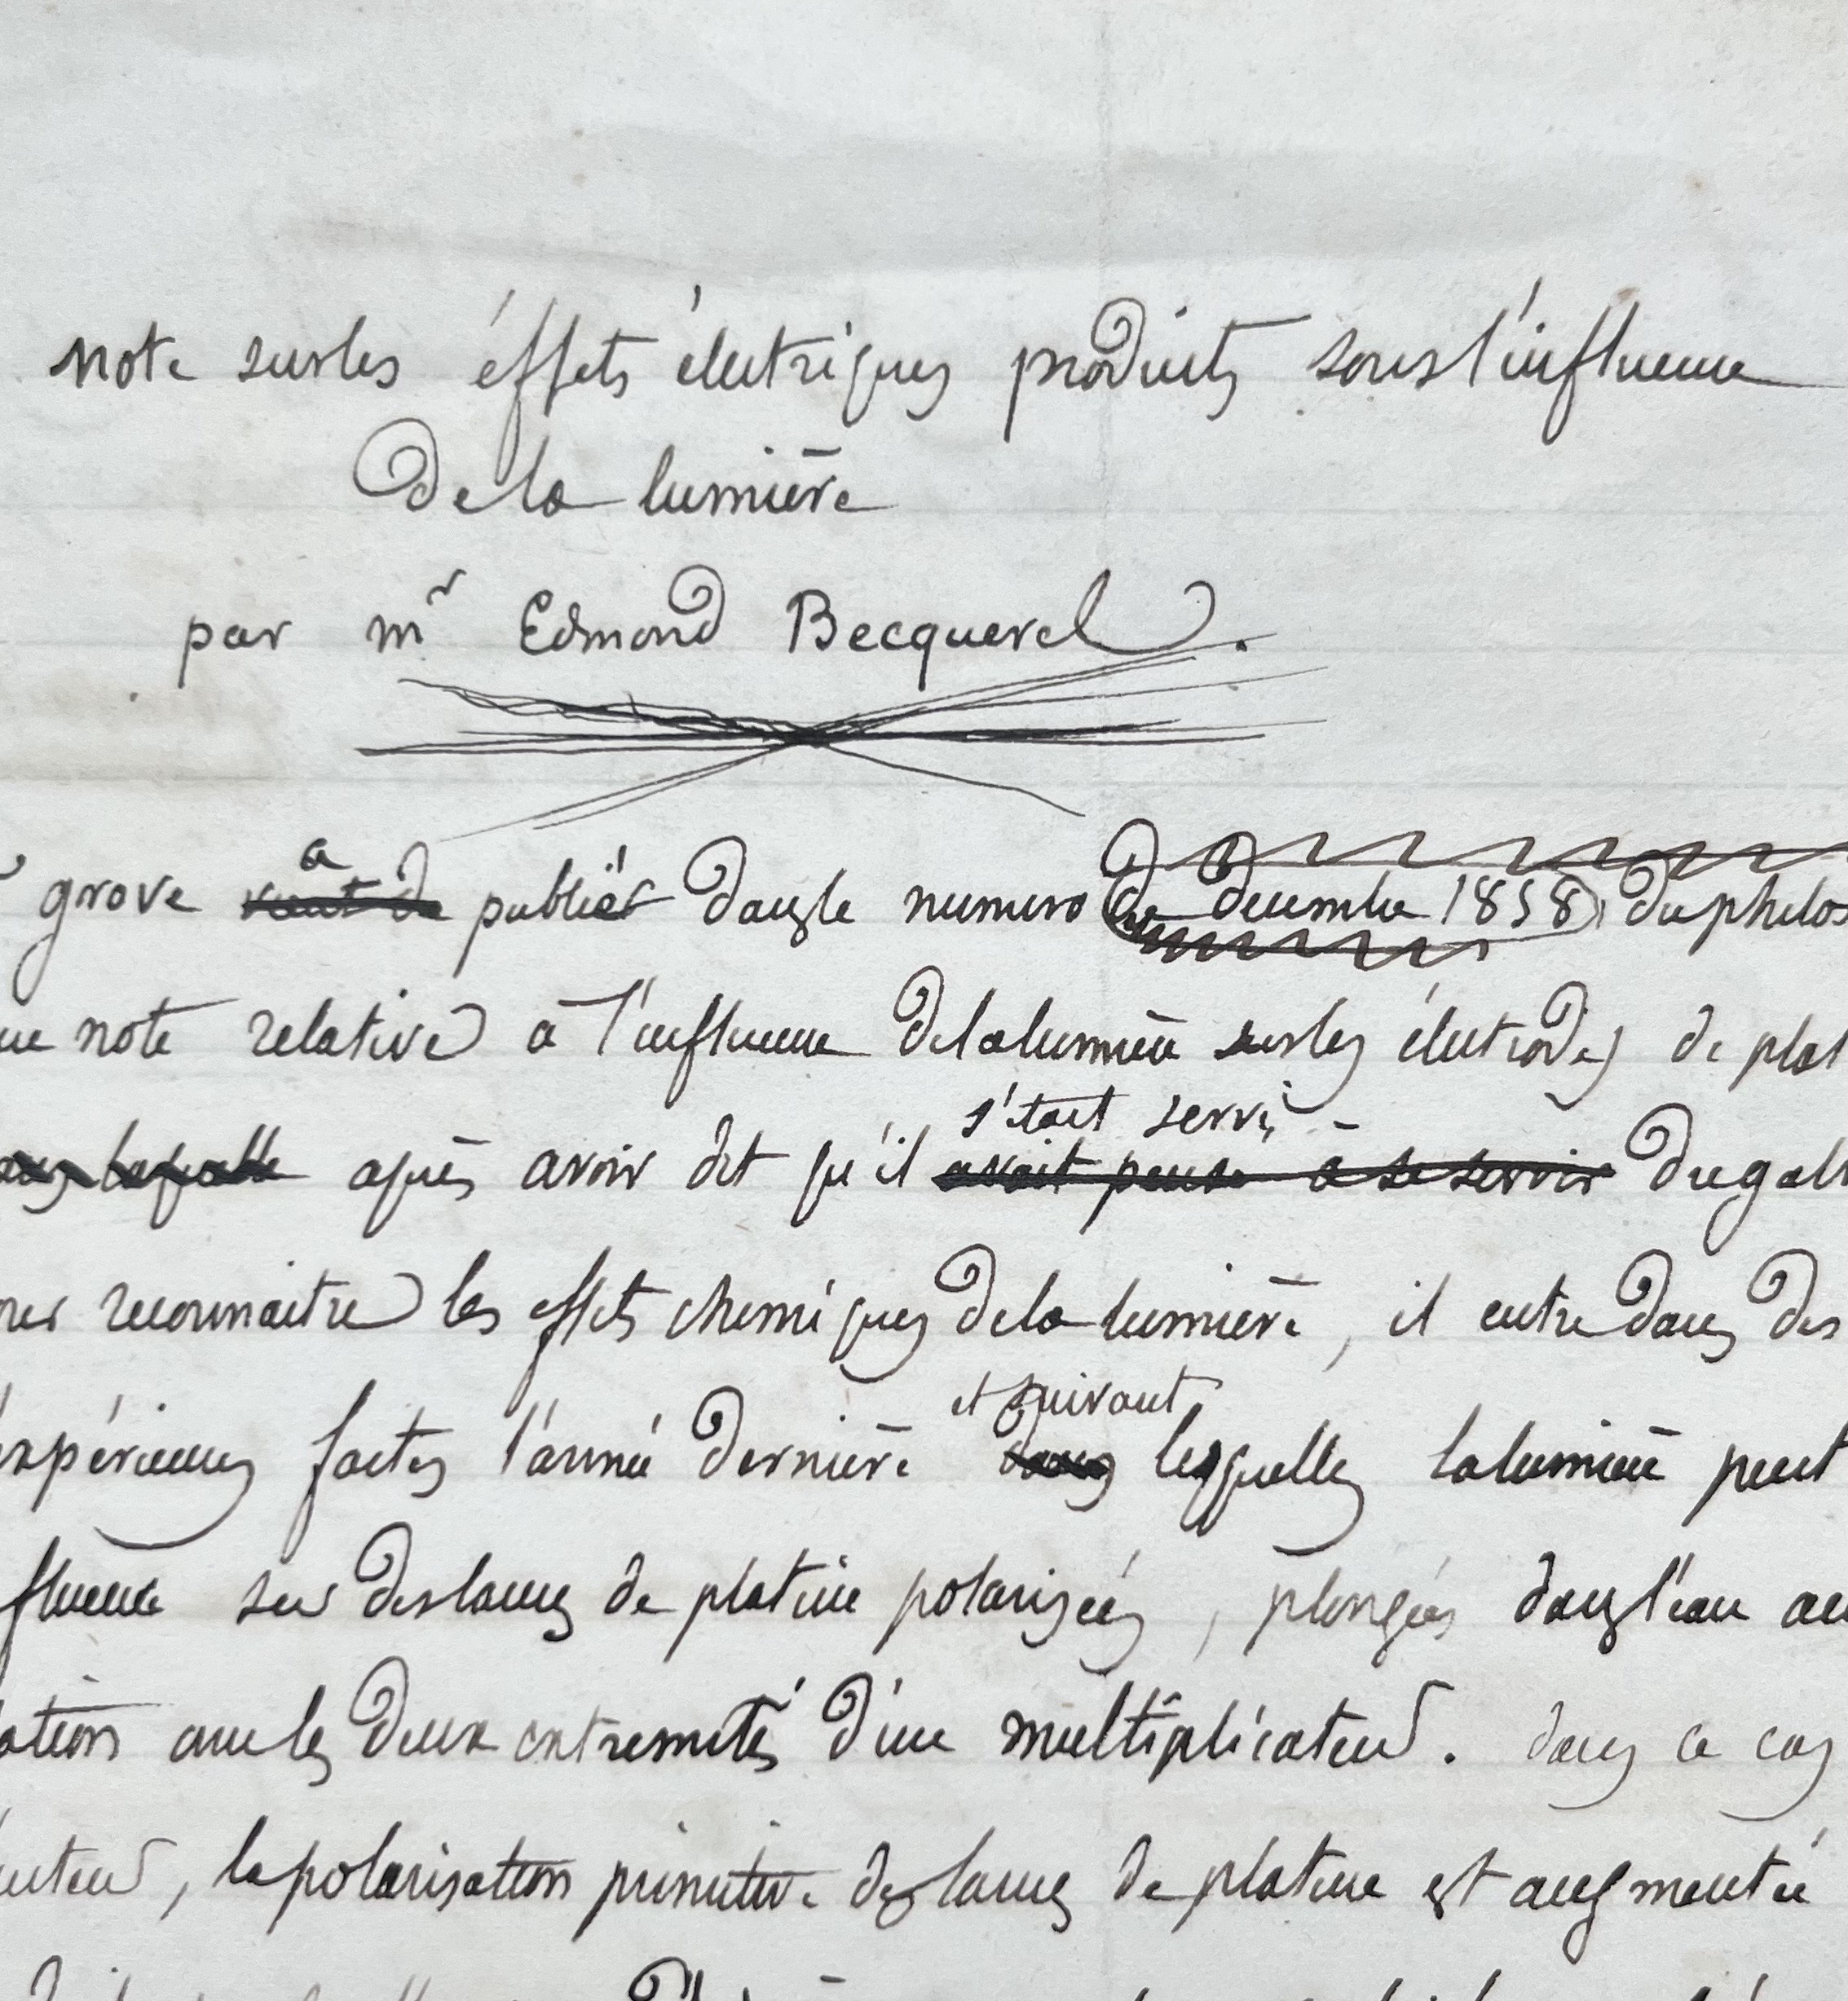 note sur les éffets électriques produits sous l'influence
de la lumière
par mr Edmond Becquerel.
a
grove vient de publiér dans le numero de decembre 1858 du philos
note relative à l'influence de la lumière sur les électrodes de plat
s'etait servi
laquelle après avoir dit qu'il avait pensé a se servir du galv
reconnaitre les effets chimiques de la lumière, il entre dans des
et suivant
expériences faites l'année dernière dans lesquelles la lumière peut
fluence sur des lames de platine polarisées, plongées dans l'eau
ation avec les deux extremités d'un multiplicateur. dans ce cas
, la polarisation primitive des lames de platine est augmentée